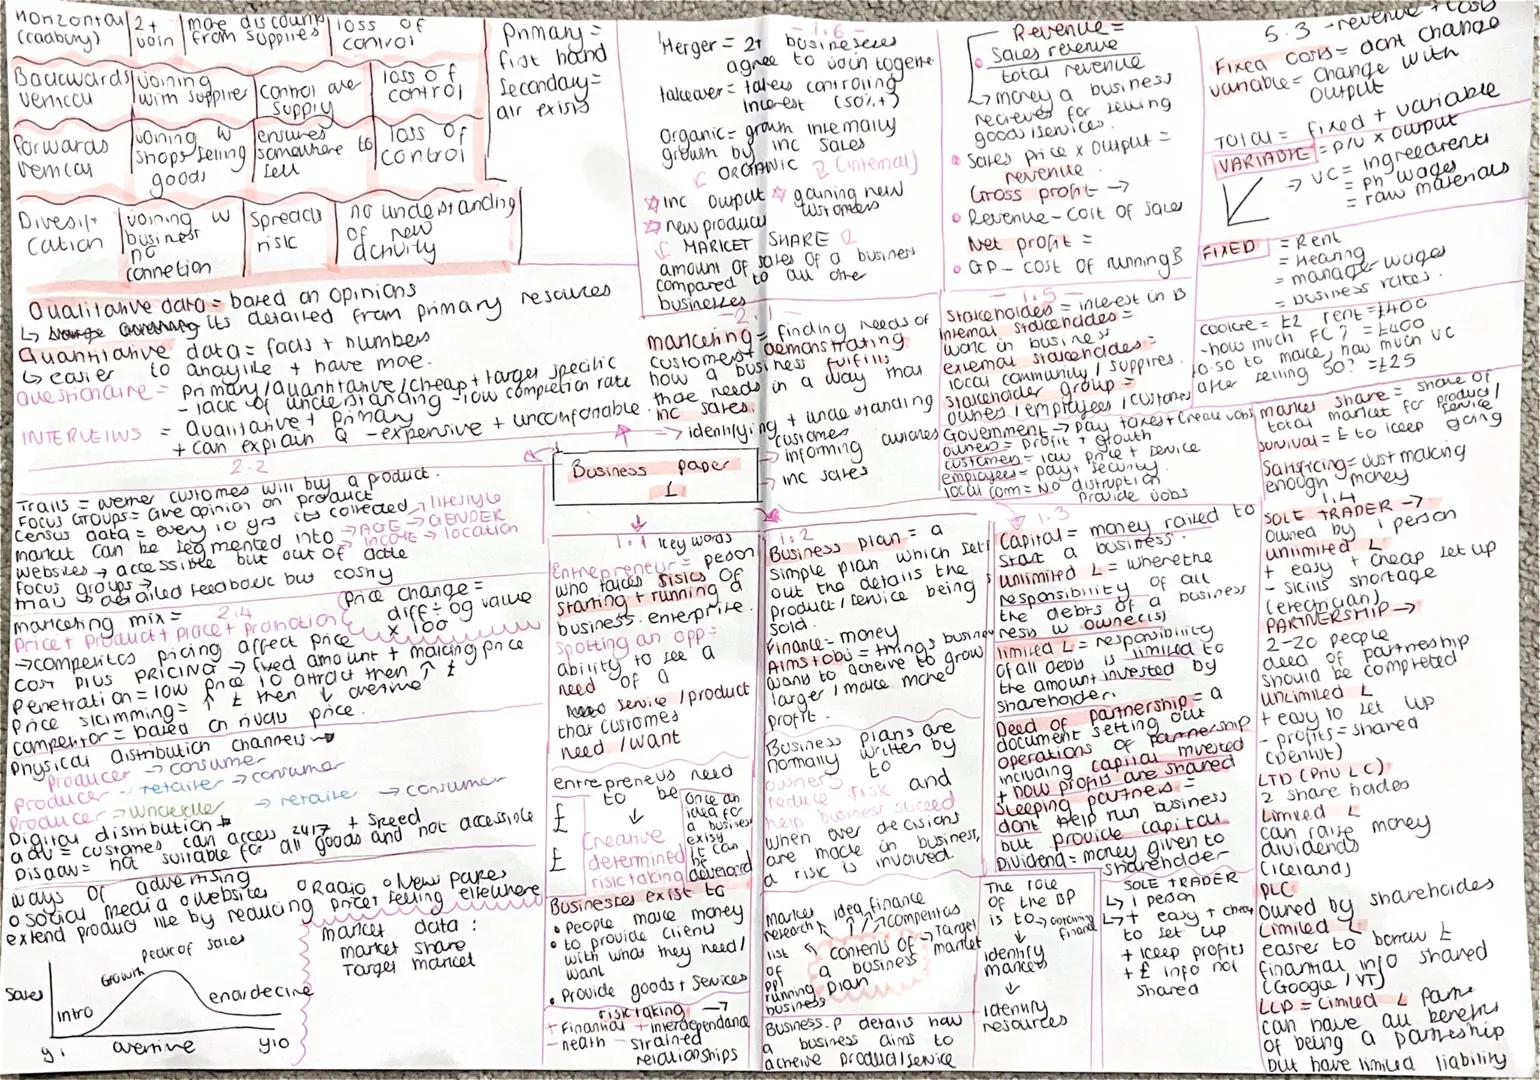 Horizontal
(cadbury)
2+
join
more discount
from supplies
loss of
control
Backwards
vertical
joining
with supplier
control over
supply
loss of
control
Forwards
vertical
joining w
shops selling
goods
ensures
somewhere to
sell
loss of
control
Diversifi
cation
joining w
business
no
connetion
Spreads
risk
no understanding
of new
activity
Primary =
first hand
Secondary =
alr exists
Qualitative data = based on opinions
its detailed from primary resources
Quantitative data = facts + numbers
easier to analyise + have more.
questionaire = primary/quantitative/cheap + target specific
- lack of understanding - low completion rate
INTERVEIWS = Qualitative + primary
+ can explain Q - expensive + uncomfortable
2.2
Trails = wether customers will buy a product.
Focus Groups = Give opinion on product
Census data = every 10 yrs its collected
market can be segmented into → AGE → GENDER → lifestyle
→ income → location
websites → accessible but out of date
focus groups →
→ detailed feedback but costly
2.4
marketing mix =
Price + Product + place + promotion
Price change =
diff ÷ og value
× 100
→ competitors pricing affect price
COST PLUS PRICING → fixed amount + making price
Penetration = low price to attract then ↑ £
Price skimming = ↑ £ then ↓ overtime
competitor = based on rivals price.
Physical distribution channels →
Producer → consumer
Producer → retailer → consumer
Producer → wholesaler → retailer → consumer
Digital distribution
adv = customers can access 24/7 + speed
Disadv = not suitable for all goods and not accessible
ways of advertising
o social media o websites o Radio o New papers
extend product life by reducing price + selling elsewhere
Sales
intro
Growth
peak of sales
end decline
y1
overtime
y10
market data :
market share
Target market
- 1.6 -
Merger = 2+ businesses
agree to join together
takeover = takes controlling
interest (50%+)
Organic = grown internally
growth by inc sales
ORGANIC (internal)
inc output
gaining new
customers
new product
MARKET SHARE
amount of sales of a business
compared to all other
businesses
2.1
marketing = finding needs of
customers + demonstrating
how a business fulfills
those needs in a way that
inc sales.
→ identifying + understanding
customers
→ informing customers
→ inc sales
Business paper
1
1.1 Key words
Entrepreneur = person
who takes risks of
starting + running a
business enterprise.
spotting an opp =
ability to see a
need of a
service / product
that customers
need / want
entrepreneurs need
to be
↓
Creative
determined
risk taking
£
£
Once an
idea for
a business
exists
it can
be
developed
Businesses exist to
• People make money
• to provide clients
with what they need/
want
• Provide goods + services
risk taking →
+ financial + interdependance
- health - strained
relationships
1.2
Business plan = a
simple plan which sets
out the details the
product / service being
sold.
Finance = money
Aims + obj = things business
wants to acheive to grow
larger / make more
profit.
Business plans are
normally written by
owners to
reduce risk and
help business succeed
when ever decisions
are made in business,
a risk is involved.
market
research
idea
finance
competitors
Target
market
contents of
a business
plan
list
of
ppl
running
business
Business.P details how
a business aims to
acheive product/service
The role
of the BP
is to
→ obtaining
finance
↓
identify
markets
↓
identify
resources
Revenue =
Sales revenue
total revenue
money a business
recieves for selling
goods/services.
Sales price x output =
revenue.
Gross profit →
Revenue - cost of sales
Net profit =
GP - cost of running B
- 1.5 -
Stakeholders = interest in B
internal stakeholders =
work in business
external stakeholders =
local community / suppliers.
stakeholder group =
owners / employees / customers
Government → pay taxes + create jobs
owners = profit + growth
customers = low price + service
employees = pay + security
local com = No disruption
Provide jobs
1.3
Capital = money raised to
start a business.
unlimited L = where the
responsibility of all
the debts of a business
rests w owner(s)
limited L = responsibility
of all debts is limited to
the amount invested by
shareholder.
Deed of partnership = a
document setting out
operations of partnership
including capital invested
+ how profits are shared
sleeping partners =
dont help run business
but provide capital
Dividend = money given to
shareholder
SOLE TRADER
↳ 1 person
↳ + easy + cheap
to set up
+ keep profits
+ £ info not
shared
5.3 - revenue + costs
Fixed costs = dont change
variable = change with
output
TOTAL = fixed + variable
VARIABLE = P/U x output
→ VC = ingredients
= ph wages
= raw materials
FIXED = Rent
= Heating
= manager wages
= business rates.
cookie = £2 rent = £400
- how much FC? = £400
£0.50 to make, how much VC
after selling 50? = £25
market share = share of
total market for product/
service
survival = £ to keep going
Satisficing = Just making
enough money
1.4
SOLE TRADER →
Owned by 1 person
unlimited L
+ easy + cheap set up
- skills shortage
(electrician)
PARTNERSHIP →
2-20 people
deed of partnership
should be completed
unlimited L
+ easy to set up
- profits = shared
(dentist)
LTD (Priv L C)
2 share holders
Limited L
can raise money
dividends
(iceland)
PLC
owned by shareholders
Limited L
easier to borrow £
financial info shared
(Google / YT)
LLP = Limited L Partn
can have all benefits
of being a partnership
but have limited liability